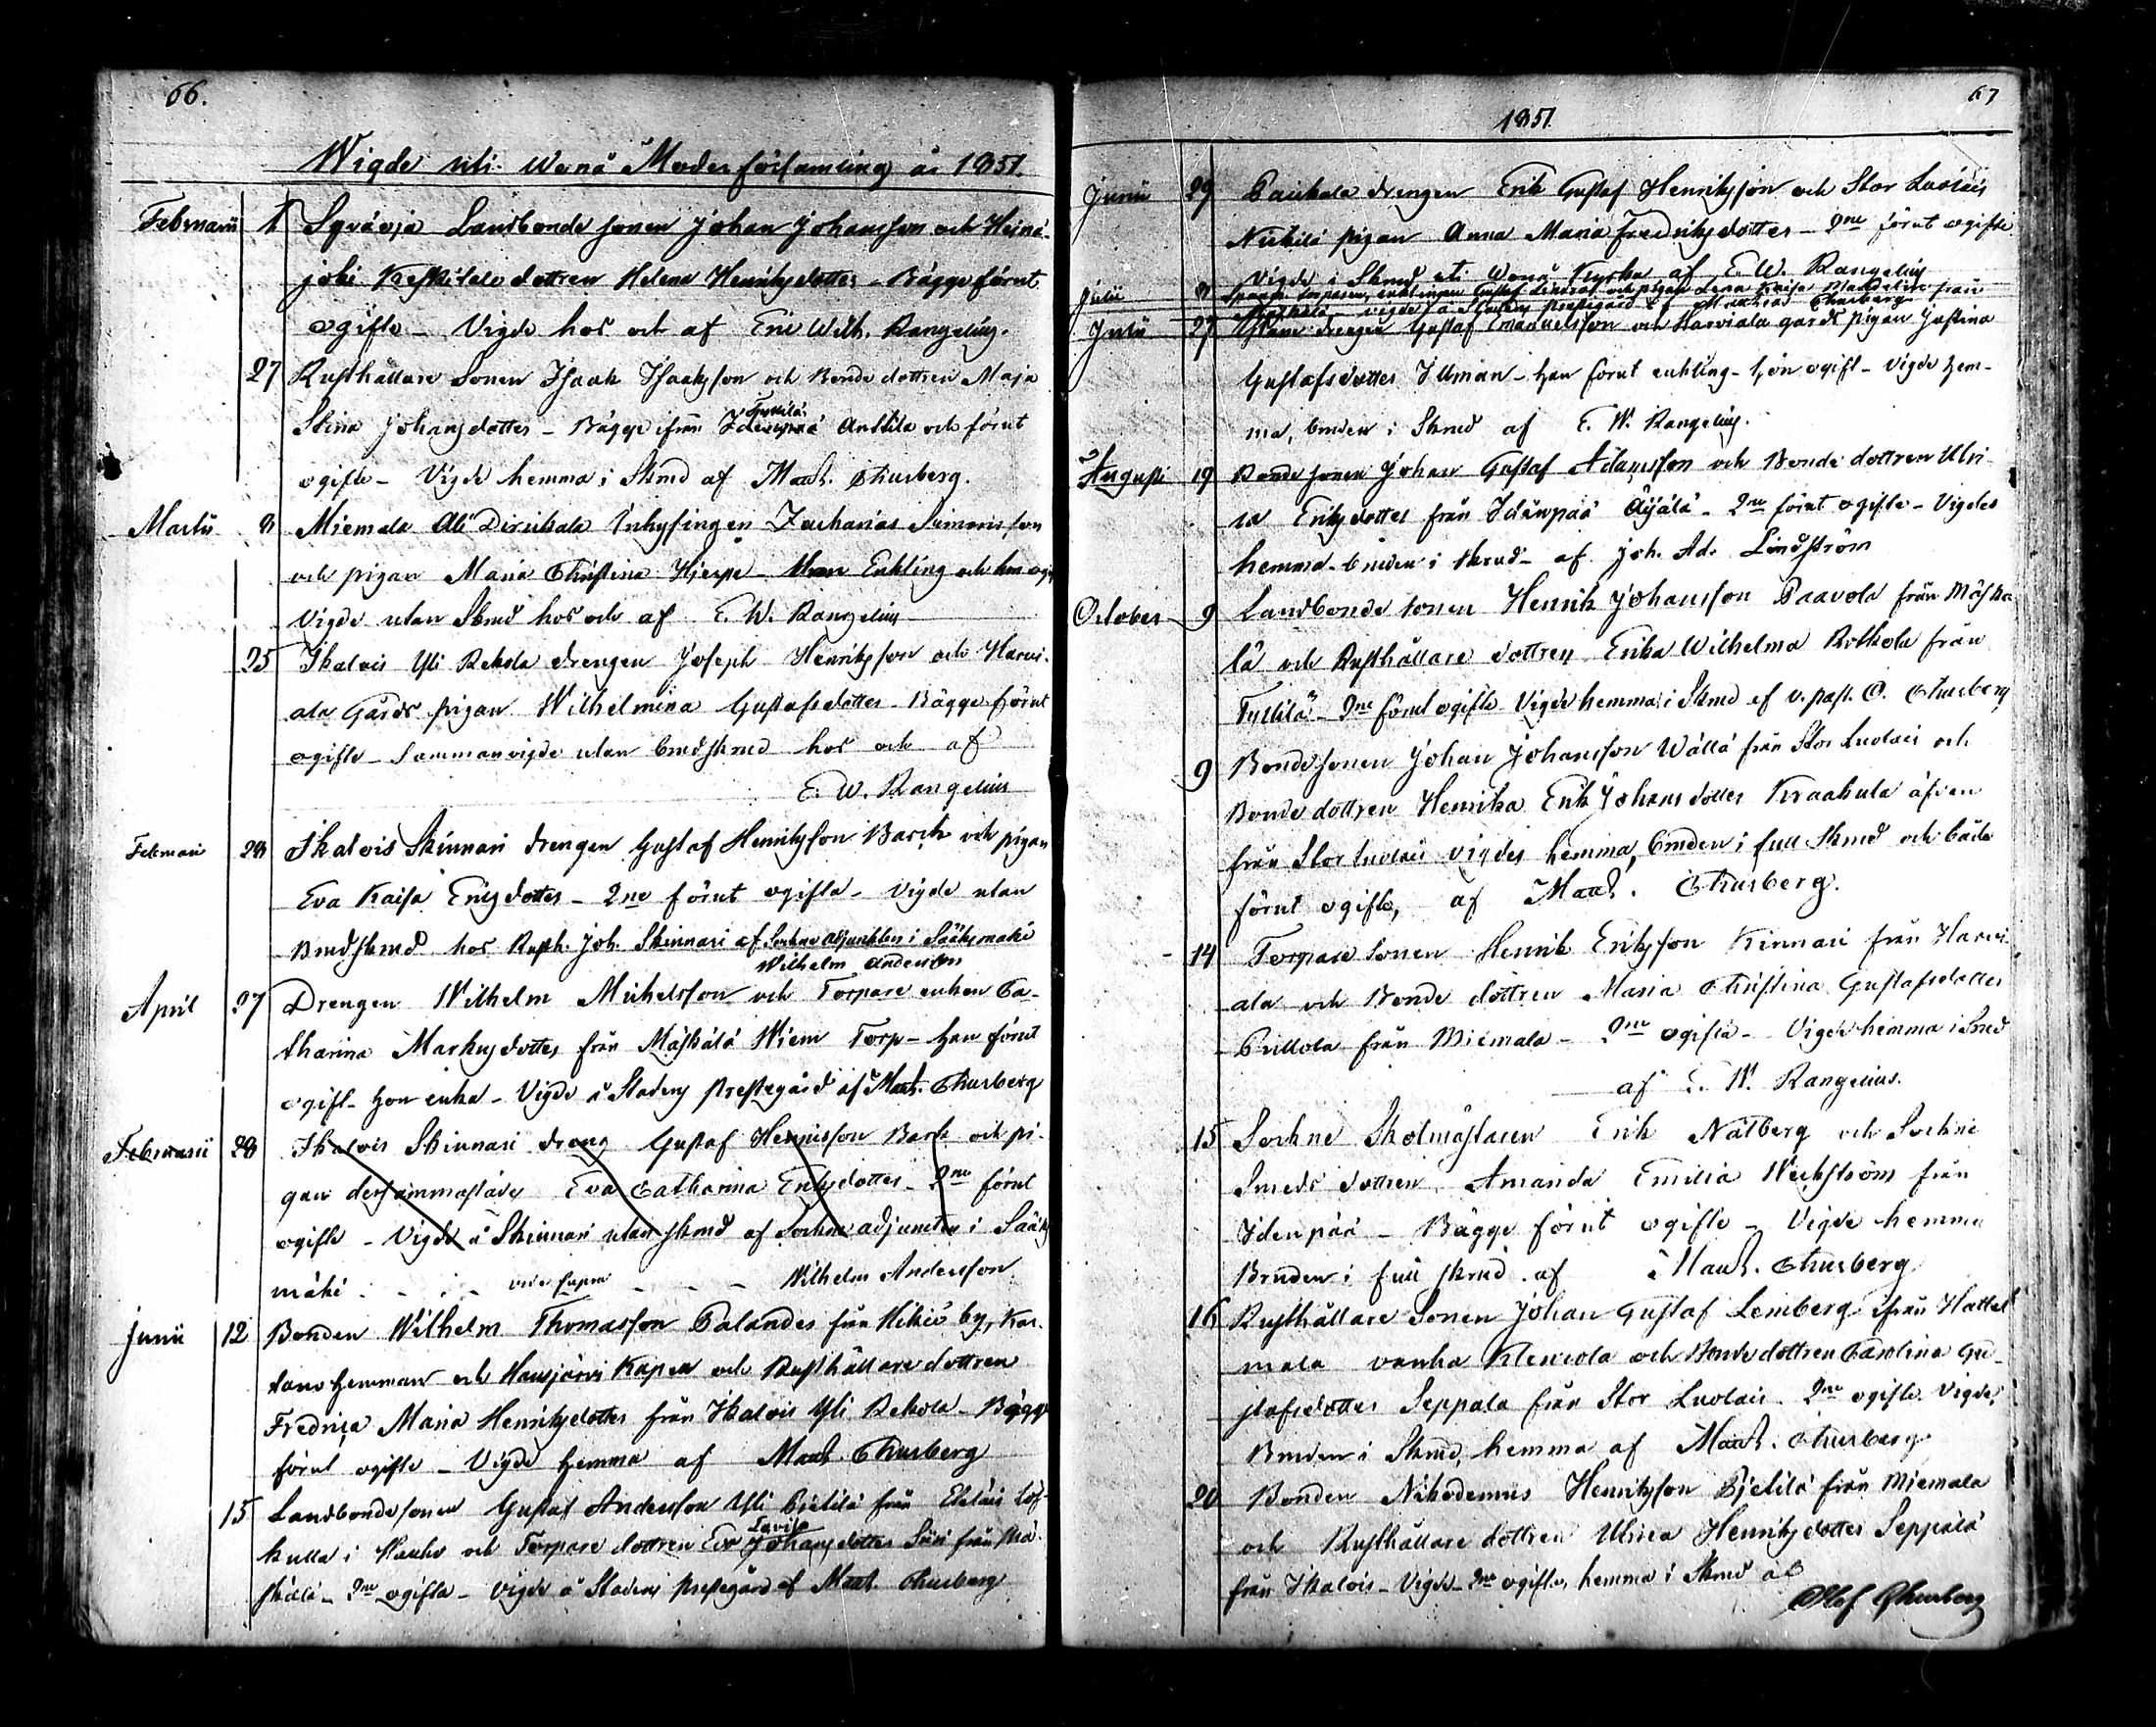 66.
Wigde uti Wånå Moderförsamling år 1851.
Februarii 1 Sqvåvja Landbonde sonen Johan Johansson och Heinä-
joki Keskitalo dottren Helena Henriksdotter - Bägge förut
ogifte - Vigde hos och af Eric Wilh. Rangelius.
27 Rusthållare Sonen Isaak Isaaksson och Bonde dottren Maja
Stina Johansdotter - Bägge ifrån Idänpää Tyrilä Anttila och förut
ogifte - Vigde hemma i Skrud af Math. Thusberg.
Martii 8 Miemala Ali Dirikala Inhysingen Zacharias Simonsson
och pigan Maria Christina Hjerpe - Han Enkling och hon ogift
Vigde utan Skrud hos och af E. W. Rangelius
25 Ikalois Yli Rekola drengen Joseph Henriksson och Harvi-
ala Gårds pigan Wilhelmina Gustafsdotter - Bägge förut
ogifte - Sammanvigde utan brudskrud hos och af
E. W. Rangelius
Februari 28 Ikalois Skinnari drengen Gustaf Henriksson Barck och pigan
Eva Kaisa Ericsdotter - 2ne förut ogifta - Vigde utan
Brudskrud hos Rusth. Joh. Skinnari af Sockne adjunkten i Sääksmäki
Wilhelm Andersson
April 27 Drengen Wilhelm Michelsson och Torpare enkan Ca-
tharina Markusdotter från Mäskälä Wiem Torp - Han förut
ogift - Hon enka - Vigde å Stadens Prestegård af Math. Thusberg
Februarii 28 Ikalois Skinnari dreng Gustaf Henricsson Bark och pi-
gan dersammastädes Eva Catharina Eriksdotter - 2ne förut
ogifte - Vigde å Skinnari utan skrud af Sockne adjuncten i Sääks
mäki - - - vide supra - - - Wilhelm Andersson
Junii 12 Bonden Wilhelm Thomasson Palander från Hikiä by, Kar-
tano hemman och Hausjärvi Kapell och Rusthållare dottren
Fredrica Maria Henriksdotter från Ikalois Yli Rekola - Bägge
förut ogifte - Vigde hemma af Math. Thusberg
15 Landbondesonen Gustaf Andersson Yli Pietilä från Eteläis Löf-
kulla i Hauho och Torpare dottren Eva Lovisa Johansdotter Siiri från Mä-
skälä - 2ne ogifta - Vigde å Stadens Prestegård af Math. Thusberg
67
1851.
Junii 29 Paikala drengen Erik Gustaf Henriksson och Stor Luolais
Nickilä pigan Anna Maria Fredriksdotter - 2ne förut ogifte
Vigde i Skrud uti Wånå Kyrka af E. W. Rangelius
Julii 8 torparen, enklingen Gustaf och pigan Lena Kaisa från
vigde å Stadens prestegård af Math. Thusberg
Julii 27 drengen Gustaf Emanuelsson och Harviala gårds pigan Justina
Gustafsdotter Illman - Han förut enkling - Hon ogift - Vigde hem-
ma, bruden i Skrud af E. W. Rangelius.
Augusti 19 Bonde sonen Johan Gustaf Adamsson och Bonde dottren Ulri-
ca Eriksdotter från Idänpää Äijälä - 2ne förut ogifte - Vigdes
hemma - bruden i skrud - af Joh. Ad. Lindström
October 9 Landbonde sonen Henrik Johansson Paavola från Mäskä-
lä och Rusthållare dottren Erika Wilhelma Rotkola från
Tyrilä - 2ne förut ogifte - Vigde hemma i Skrud af v. past. O. Thusberg
9 Bondesonen Johan Johansson Wällä från Stor Luolais och
Bonde dottren Henrika Erik Johans dotter Kraakula äfven
från Stor Luolais vigdes hemma, bruden i full Skrud och båda
förut ogifte, af Math. Thusberg.
14 Torpare Sonen Henrik Eriksson Kinnari från Harvi-
ala och Bonde dottren Maria Christina Gustafsdotter
Pullola från Miemala - 2ne ogifta - Vigde hemma i Skrud
af E. W. Rangelius.
15 Sockne Skolmästaren Erik Nätberg och Sockne
Smeds dottren Amanda Emilia Weckström från
Idenpää - Bägge förut ogifte - Vigde hemma
Bruden i full skrud af Math. Thusberg
16 Rusthållare Sonen Johan Gustaf Lemberg ifrån Hattel-
mala vanha Klemola och Bonde dottren Carolina Gu-
stafsdotter Seppala från Stor Luolais - 2ne ogifte. Vigde,
Bruden i Skrud, hemma af Math. Thusberg
20 Bonden Nikodemus Henriksson Pietilä från Miemala
och Rusthållare dottren Ulrica Henriksdotter Seppälä
från Ikalois - Vigde 2ne ogifte, hemma i Skrud af
Olof Thusberg